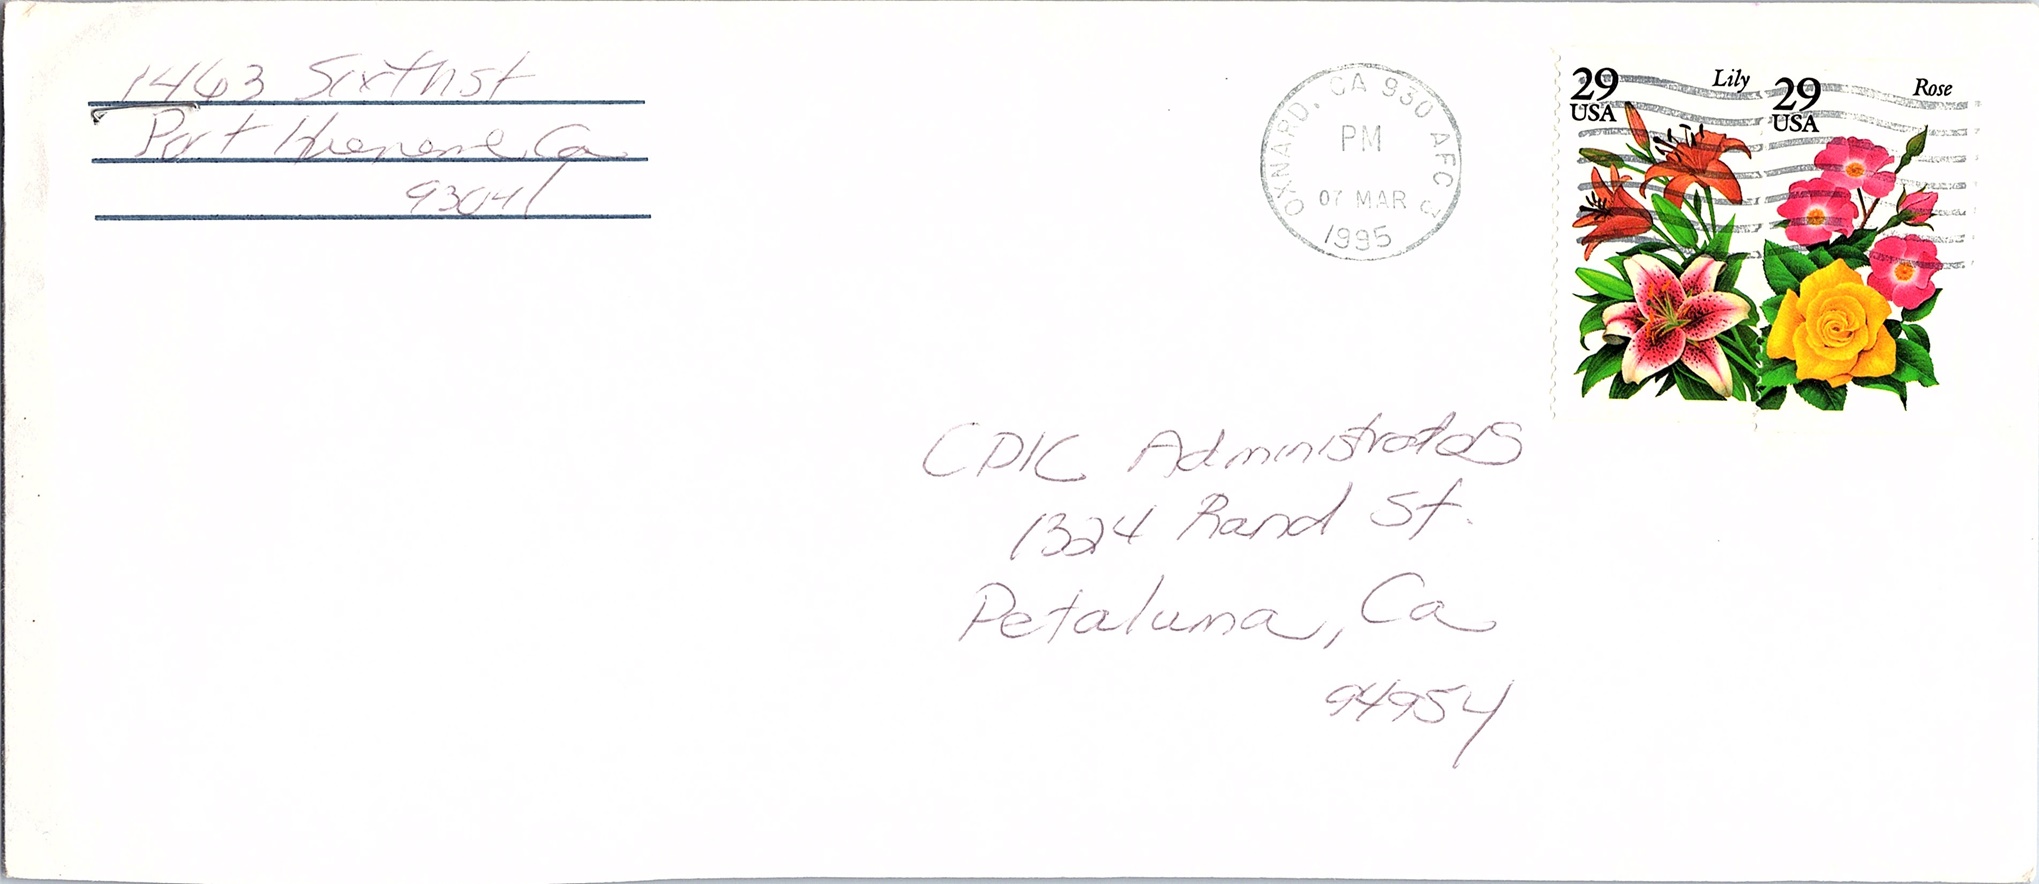 1463 Sixth st
Port Hueneme, Ca
93041
OXNARD, CA 930 AFC 3
PM
07 MAR
1995
29
USA
Lily
29
USA
Rose
CDIC Administrators
1324 Rand St.
Petaluma, Ca
94954